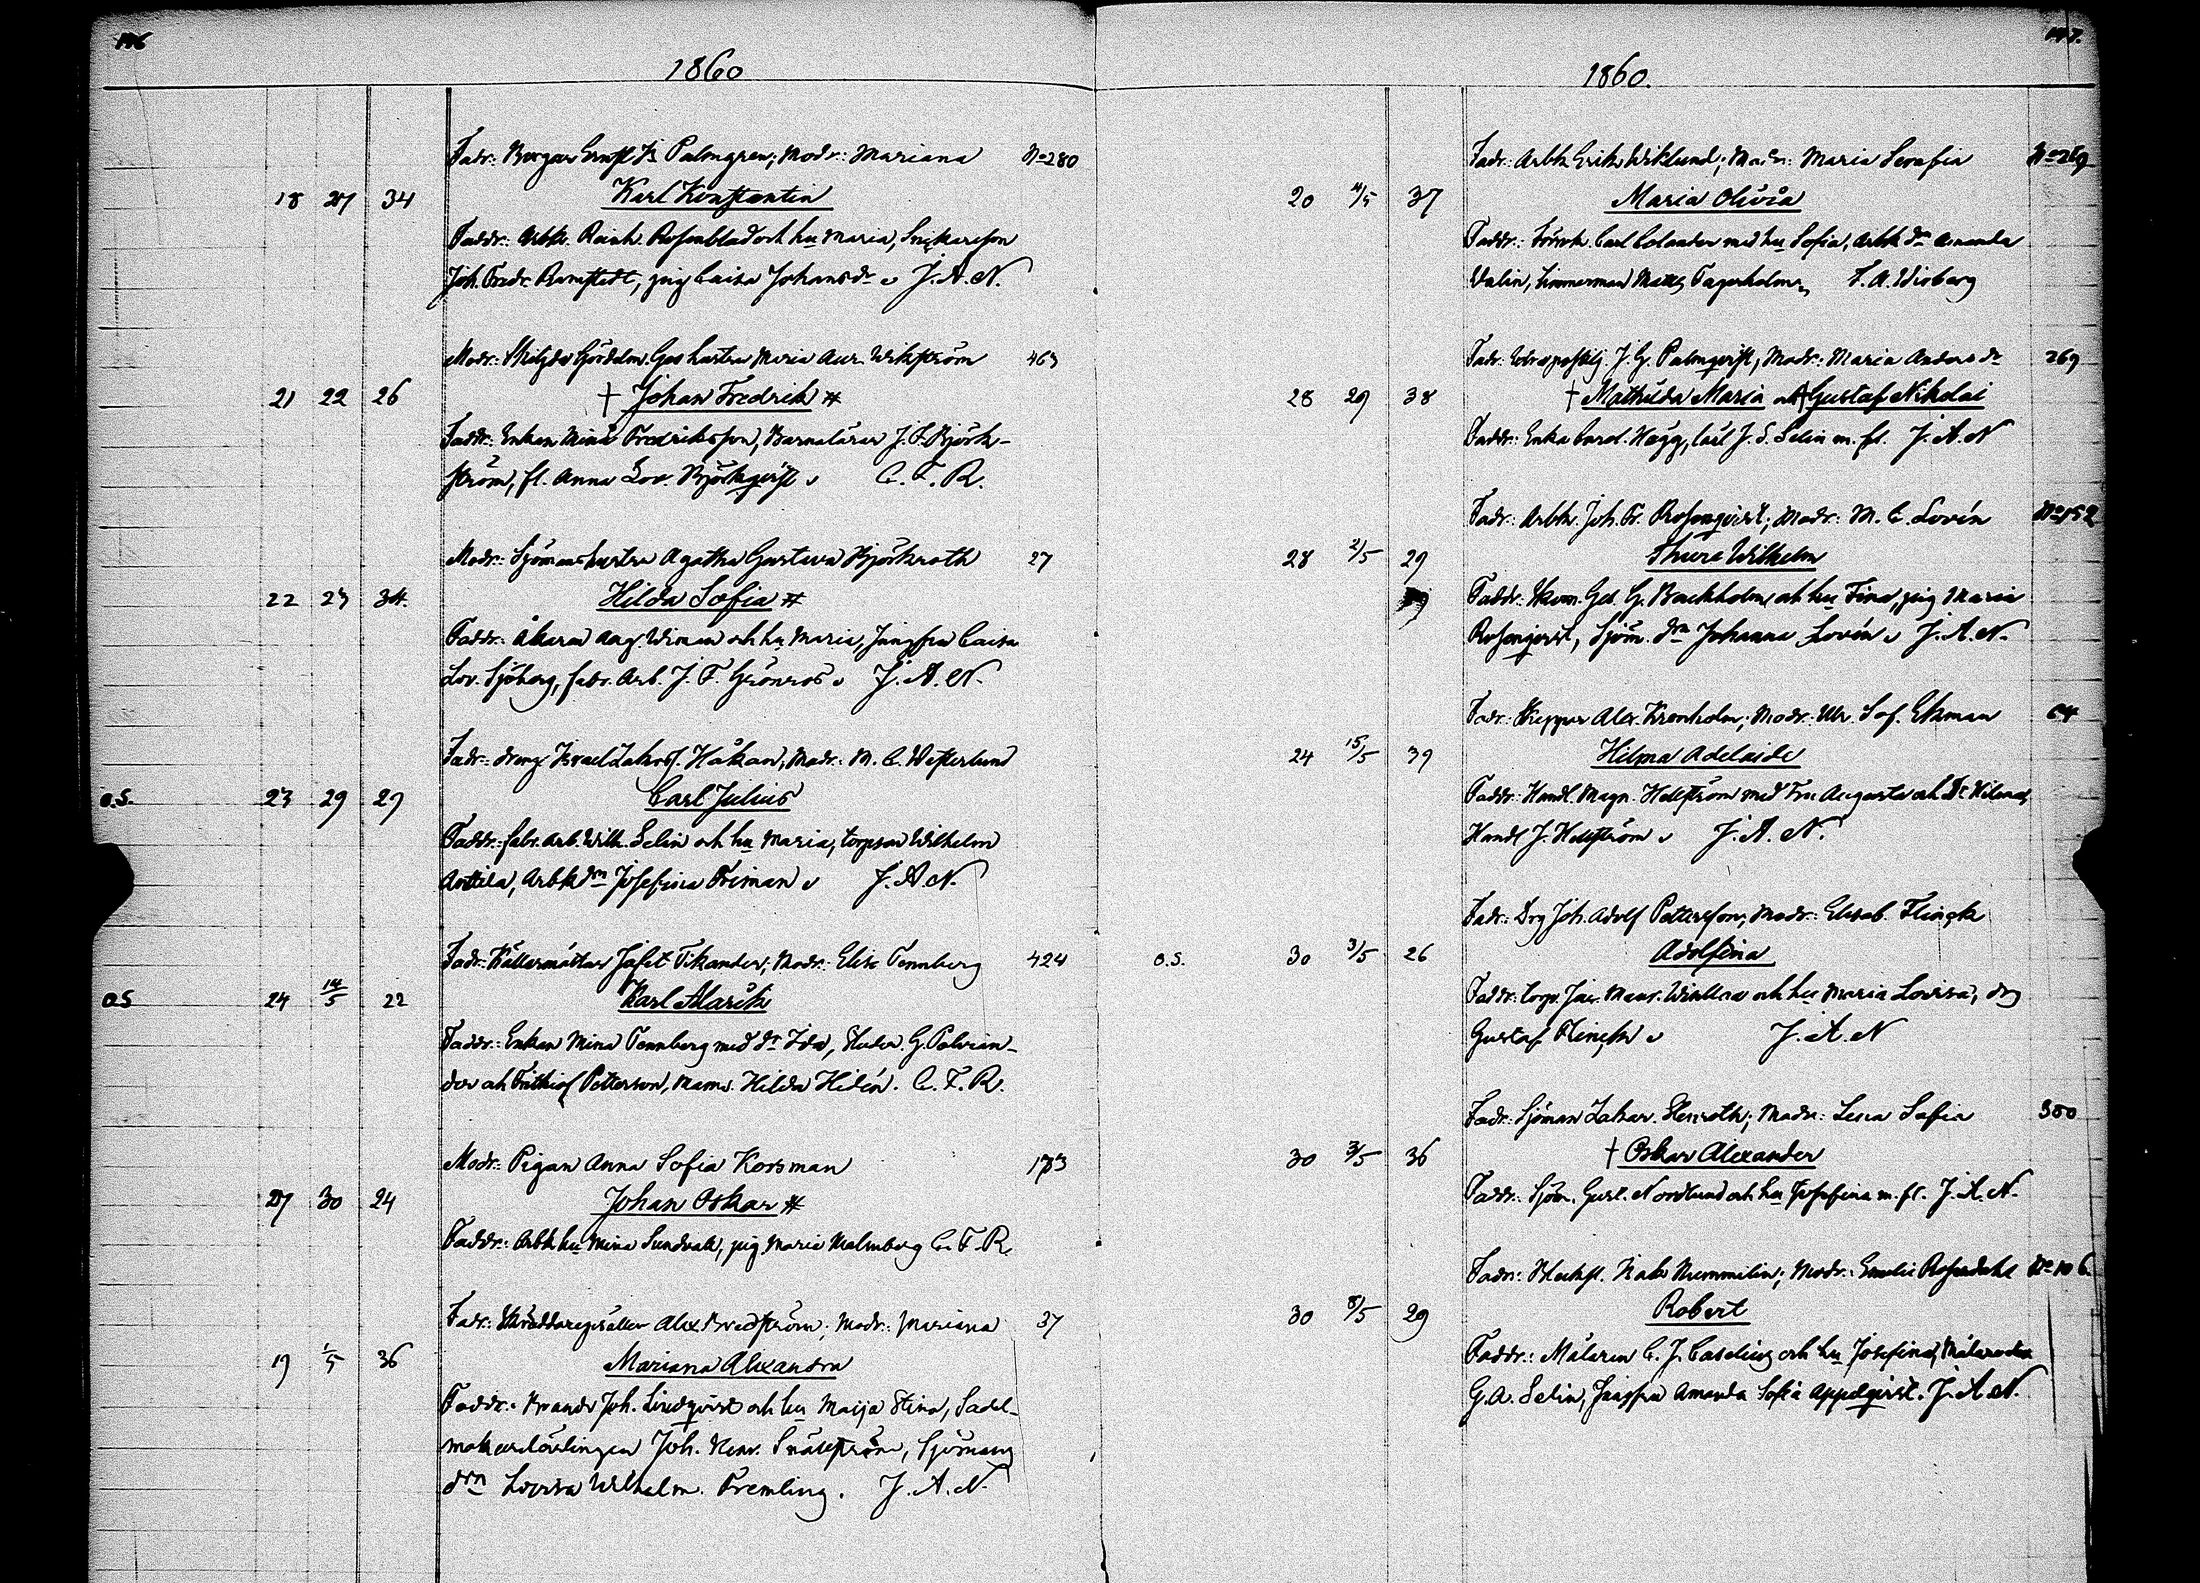 146
1860
Fadr: Borgar Ernst Palmgren; Modr: Mariana No 280
18 27 34 Karl Konstantin
Faddr: Arbk. Reinh. Rosenblad och hu Maria, Snickareson
Joh. Fredr. Ramstedt, pig Caisa Johansdr J. A. N.
Modr: Gördelm. Ges. hustru Maria Aur. Wikström 463
21 22 26 † Johan Fredrik #
Faddr: Enkan Mina Fredriksson, Barnalärar J. F. Björk-
ström, fl. Anna Lov. Björkqvist C. F. R.
Modr: Sjömans hustru Agatha Gustava Björkroth 27
22 23 34. Hilda Sofia #
Faddr: Åkaren Aug. Wiman och hu Maria, Jungfru Caisa
Lov. Sjöberg, fabr. Arb. J. F. Grönros J. A. N.
Fadr: dreng Israel Zakrs. Håkan, Modr: M. C. Westerlund
O.S. 23 29 29 Carl Julius
Faddr: fabr. arb. Wilh. Selin och hu Maria, torpson Wilhelm
Anttila, Arbk dn Josefina Friman J. A. N.
Fadr: Källarmästar Jafet Tikander; Modr: Elise Tennberg 424
O.S 24 14/5 22 Karl Alarik
Faddr: Enkan Mina Tennberg med dr Ida, Studer. G. Polvian-
der och Frithiof Petterson, Mams. Hilda Hidén. C. F. R.
Modr: Pigan Anna Sofia Korsman 173
27 30 24 Johan Oskar #
Faddr: Arbk hu Mina Sundvall, pig Maria Malmberg C. F. R
Fadr: Skräddaregesällen Alex Bredström; Modr: Mariana 37
19 1/5 36 Mariana Alexandra
Faddr: Joh. Lindqvist och hu Maija Stina, Sadel-
makarelärlingen Joh. Henr. Snällström, Sjömans
drn Lovisa Wilhelm. Fremling. J. A. N.
147.
1860.
Fadr: Arbk Erik Wiklund; Modr: Maria Serafia No 269
20 4/5 37 Maria Olivia
Faddr: Carl Colander med hu Sofia, Arbk dr Amanda
Valin, timmerman Matts Fagerholm, F. A. Widberg
Fadr: J. G. Palmqvist, Modr: Maria Andersdr 269
28 29 38 † Mathilda Maria och † Gustaf Nikolai
Faddr: Enka Carol. Hägg, J. S. Selin m. fl. J. A. N
Fadr: Arbk. Joh. Fr. Rosenqvist; Modr: M. C. Lovén No 152
28 2/5 29 Thure Wilhelm
Faddr: Skom. Ges. G. Backholm och hu Fina, pig Maria
Rosenqvist, Sjöm. dn Johanna Lovén J. A. N.
Fadr: Skeppar Alex. Kronholm; Modr: Ulr. Sof. Ekman 64
24 15/5 39 Hilma Adelaide
Faddr: Handl. Magn. Hellström med Fru Augusta och Dr Hilma,
Handl J. Hellström J. A. N.
Fadr: Drg Joh. Adolf Pettersson; Modr: Elisab. Flinck
O.S. 30 3/5 26 Adolfina
Faddr: torp. Jac. Maur. och hu Maria Lovisa, drg
Gustaf Flinck J. A. N
Fadr: Sjöman Zakar. Stenroth; Modr: Lena Sofia 350
30 3/5 36 † Oskar Alexander
Faddr: Sjöm. Gust. Nordlund och hu Josefina m. fl. J. A. N.
Fadr: Blecksl. Isak Nummelin; Modr: Emelie Rosendahl No 106.
30 8/5 29 Robert
Faddr: Målaren C. J. Caselius och hu Josefina,
G. A. Selin, Jungfru Amanda Sofia Appelqvist. J. A. N.